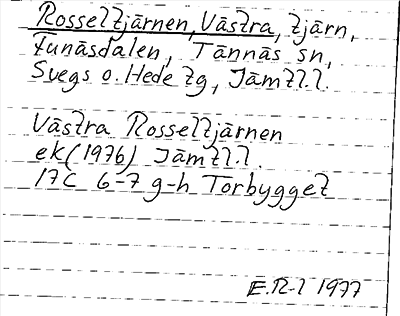 Rosseltjärnen, Västra, tjärn,
Funäsdalen, Tännäs sn,
Svegs o. Hede tg, Jämtl.l.
Västra Rosseltjärnen
ek (1976) Jämtl.l.
17C 6-7 g-h Torbygget
E.R-l 1977